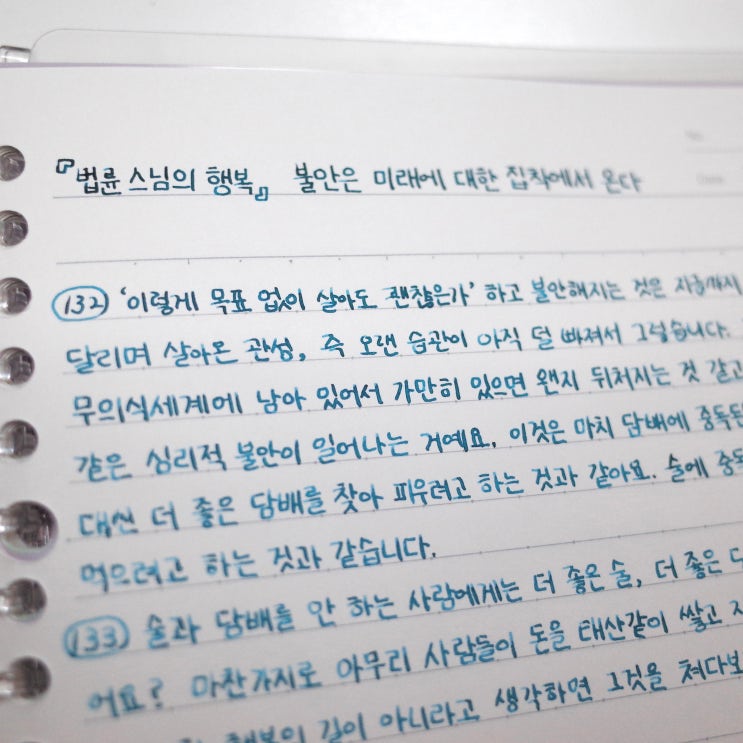 『법륜 스님의 행복』 불안은 미래에 대한 집착에서 온다
132 '이렇게 목표 없이 살아도 괜찮은가' 하고 불안해지는 것은 지금까지
달리며 살아온 관성, 즉 오랜 습관이 아직 덜 빠져서 그렇습니다.
무의식세계에 남아 있어서 가만히 있으면 왠지 뒤처지는 것 같고
같은 심리적 불안이 일어나는 거예요. 이것은 마치 담배에 중독된
대신 더 좋은 담배를 찾아 피우려고 하는 것과 같아요. 술에 중독
먹으려고 하는 것과 같습니다.
133 술과 담배를 안 하는 사람에게는 더 좋은 술, 더 좋은
어요? 마찬가지로 아무리 사람들이 돈을 태산같이 쌓고
행복의 길이 아니라고 생각하면 그것을 쳐다보